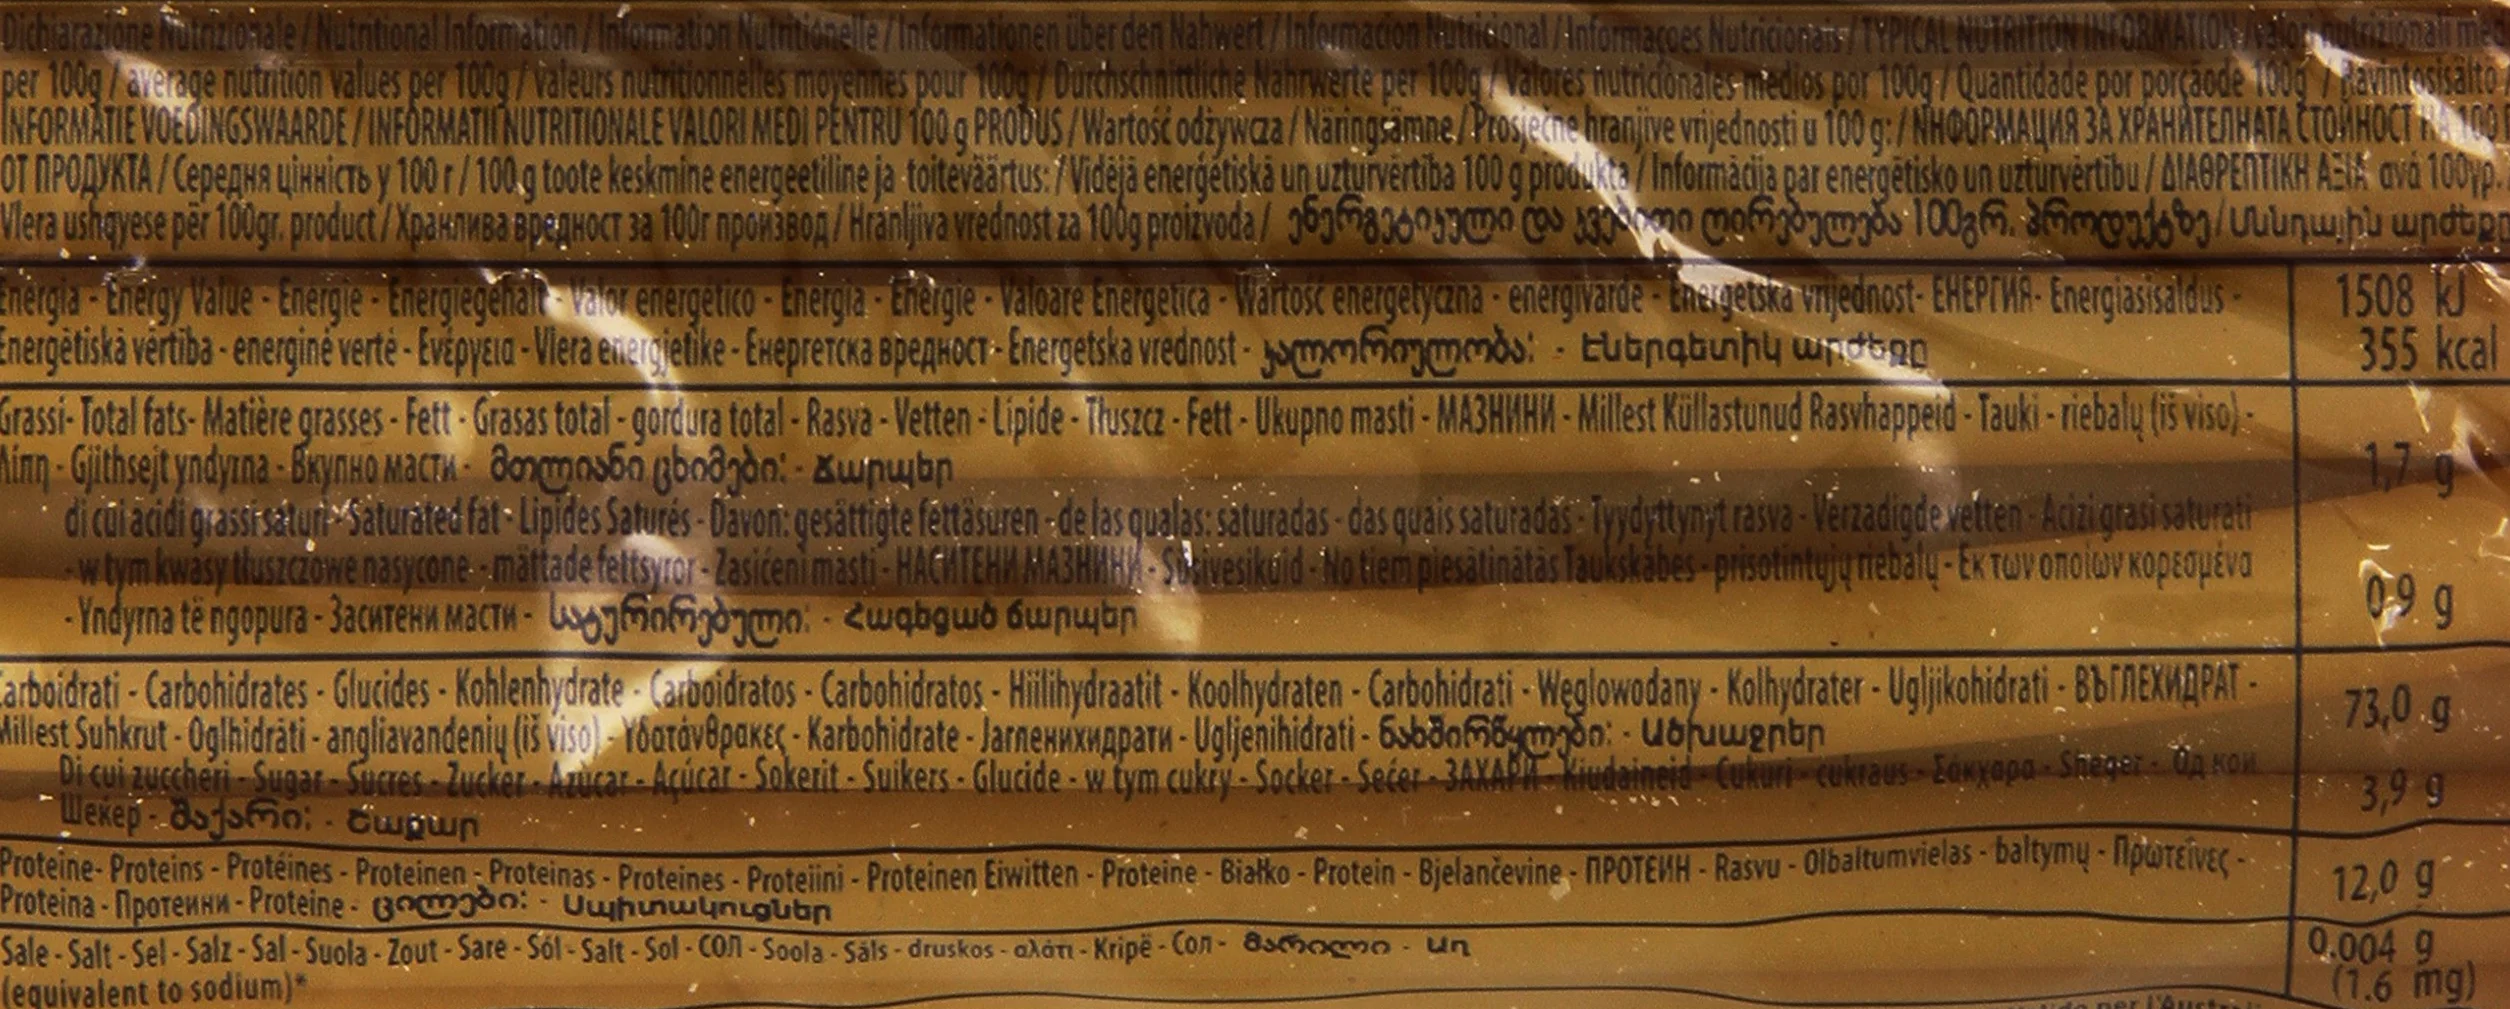 Dichiarazione Nutrizionale / Nutritional Information / Information Nutritionelle / Informationen über den Nahwert / Informacion Nutricional / Informaçoes Nutricionais / TYPICAL NUTRITION INFORMATION
per 100g / average nutrition values per 100g / valeurs nutritionnelles moyennes pour 100g / Durchschnittliche Nährwerte per 100g / Valores nutricionales medios por 100g / Quantidade por porçãode 100g / Ravintosisältö
INFORMATIE VOEDINGSWAARDE / INFORMATII NUTRITIONALE VALORI MEDI PENTRU 100 g PRODUS / Wartość odżywcza / Näringsämne / Prosječne hranjive vrijednosti u 100 g: / ИНФОРМАЦИЯ ЗА ХРАНИТЕЛНАТА СТОЙНОСТ НА 100
ОТ ПРОДУКТА / Середня цінність у 100 г / 100 g toote keskmine energeetiline ja toiteväärtus: / Vidējā enerģētiskā un uzturvērtība 100 g produkta / Informācija par enerģētisko un uzturvērtību / ΔΙΑΘΡΕΠΤΙΚΗ ΑΞΙΑ ανά 100γρ.
Vlera ushqyese për 100gr. product / Хранлива вредност за 100г производ / Hranljiva vrednost za 100g proizvoda / ენერგეტიკული და კვებითი ღირებულება 100გრ. პროდუქტზე / Սննդային արժեքը
Energia - Energy Value - Energie - Energiegehalt - Valor energético - Energia - Energie - Valoare Energetica - Wartość energetyczna - energivärde - Energetska vrijednost- ЕНЕРГИЯ- Energiasisaldus -
1508 kJ
Enerģētiskā vērtība - energinė vertė - Ενέργεια - Vlera energjetike - Енергетска вредност - Energetska vrednost - კალორიულობა: - Էներգետիկ արժեքը
355 kcal
Grassi- Total fats- Matière grasses - Fett - Grasas total - gordura total - Rasva - Vetten - Lipide - Tłuszcz - Fett - Ukupno masti - МАЗНИНИ - Millest Küllastunud Rasvhappeid - Tauki - riebalų (iš viso) -
Λίπη - Gjithsejt yndyrna - Вкупно масти - მთლიანი ცხიმები: - Ճարպեր
1,7 g
di cui acidi grassi saturi - Saturated fat - Lipides Saturés - Davon: gesättigte fettäsuren - de las qualas: saturadas - das quais saturadas - Tyydyttynyt rasva - Verzadigde vetten - Acizi grasi saturati
- w tym kwasy tłuszczowe nasycone - mättade fettsyror - Zasićeni masti - НАСИТЕНИ МАЗНИНИ - - No tiem piesātinātās Taukskābes - prisotintųjų riebalų - Εκ των οποίων κορεσμένα
- Yndyrna të ngopura - Заситени масти - სატურირებული: - Հագեցած ճարպեր
0,9 g
Carboidrati - Carbohidrates - Glucides - Kohlenhydrate - Carboidratos - Carbohidratos - Hiilihydraatit - Koolhydraten - Carbohidrati - Węglowodany - Kolhydrater - Ugljikohidrati - ВЪГЛЕХИДРАТ -
73,0 g
Millest Suhkrut - Ogļhidrāti - angliavandenių (iš viso) - Υδατάνθρακες - Karbohidrate - Јагленихидрати - Ugljenihidrati - ნახშირწყლები: - Ածխաջրեր
Di cui zuccheri - Sugar - Sucres - Zucker - Azúcar - Açúcar - Sokerit - Suikers - Glucide - w tym cukry - Socker - Sećer - ЗАХАРИ - Kiudaineid - Cukuri - cukraus - Σάκχαρα - Sheqer - Од кои
3,9 g
Шеќер - შაქარი: - Շաքար
Proteine- Proteins - Protéines - Proteinen - Proteinas - Proteines - Proteiini - Proteinen Eiwitten - Proteine - Białko - Protein - Bjelančevine - ПРОТЕИН - Rasvu - Olbaltumvielas - baltymų - Πρωτεΐνες -
12,0 g
Proteina - Протеини - Proteine - ცილები: - Սպիտակուցներ
Sale - Salt - Sel - Salz - Sal - Suola - Zout - Sare - Sól - Salt - Sol - СОЛ - Soola - Sāls - druskos - αλάτι - Kripë - Сол - მარილი - Աղ
0.004 g
(equivalent to sodium)*
(1.6 mg)